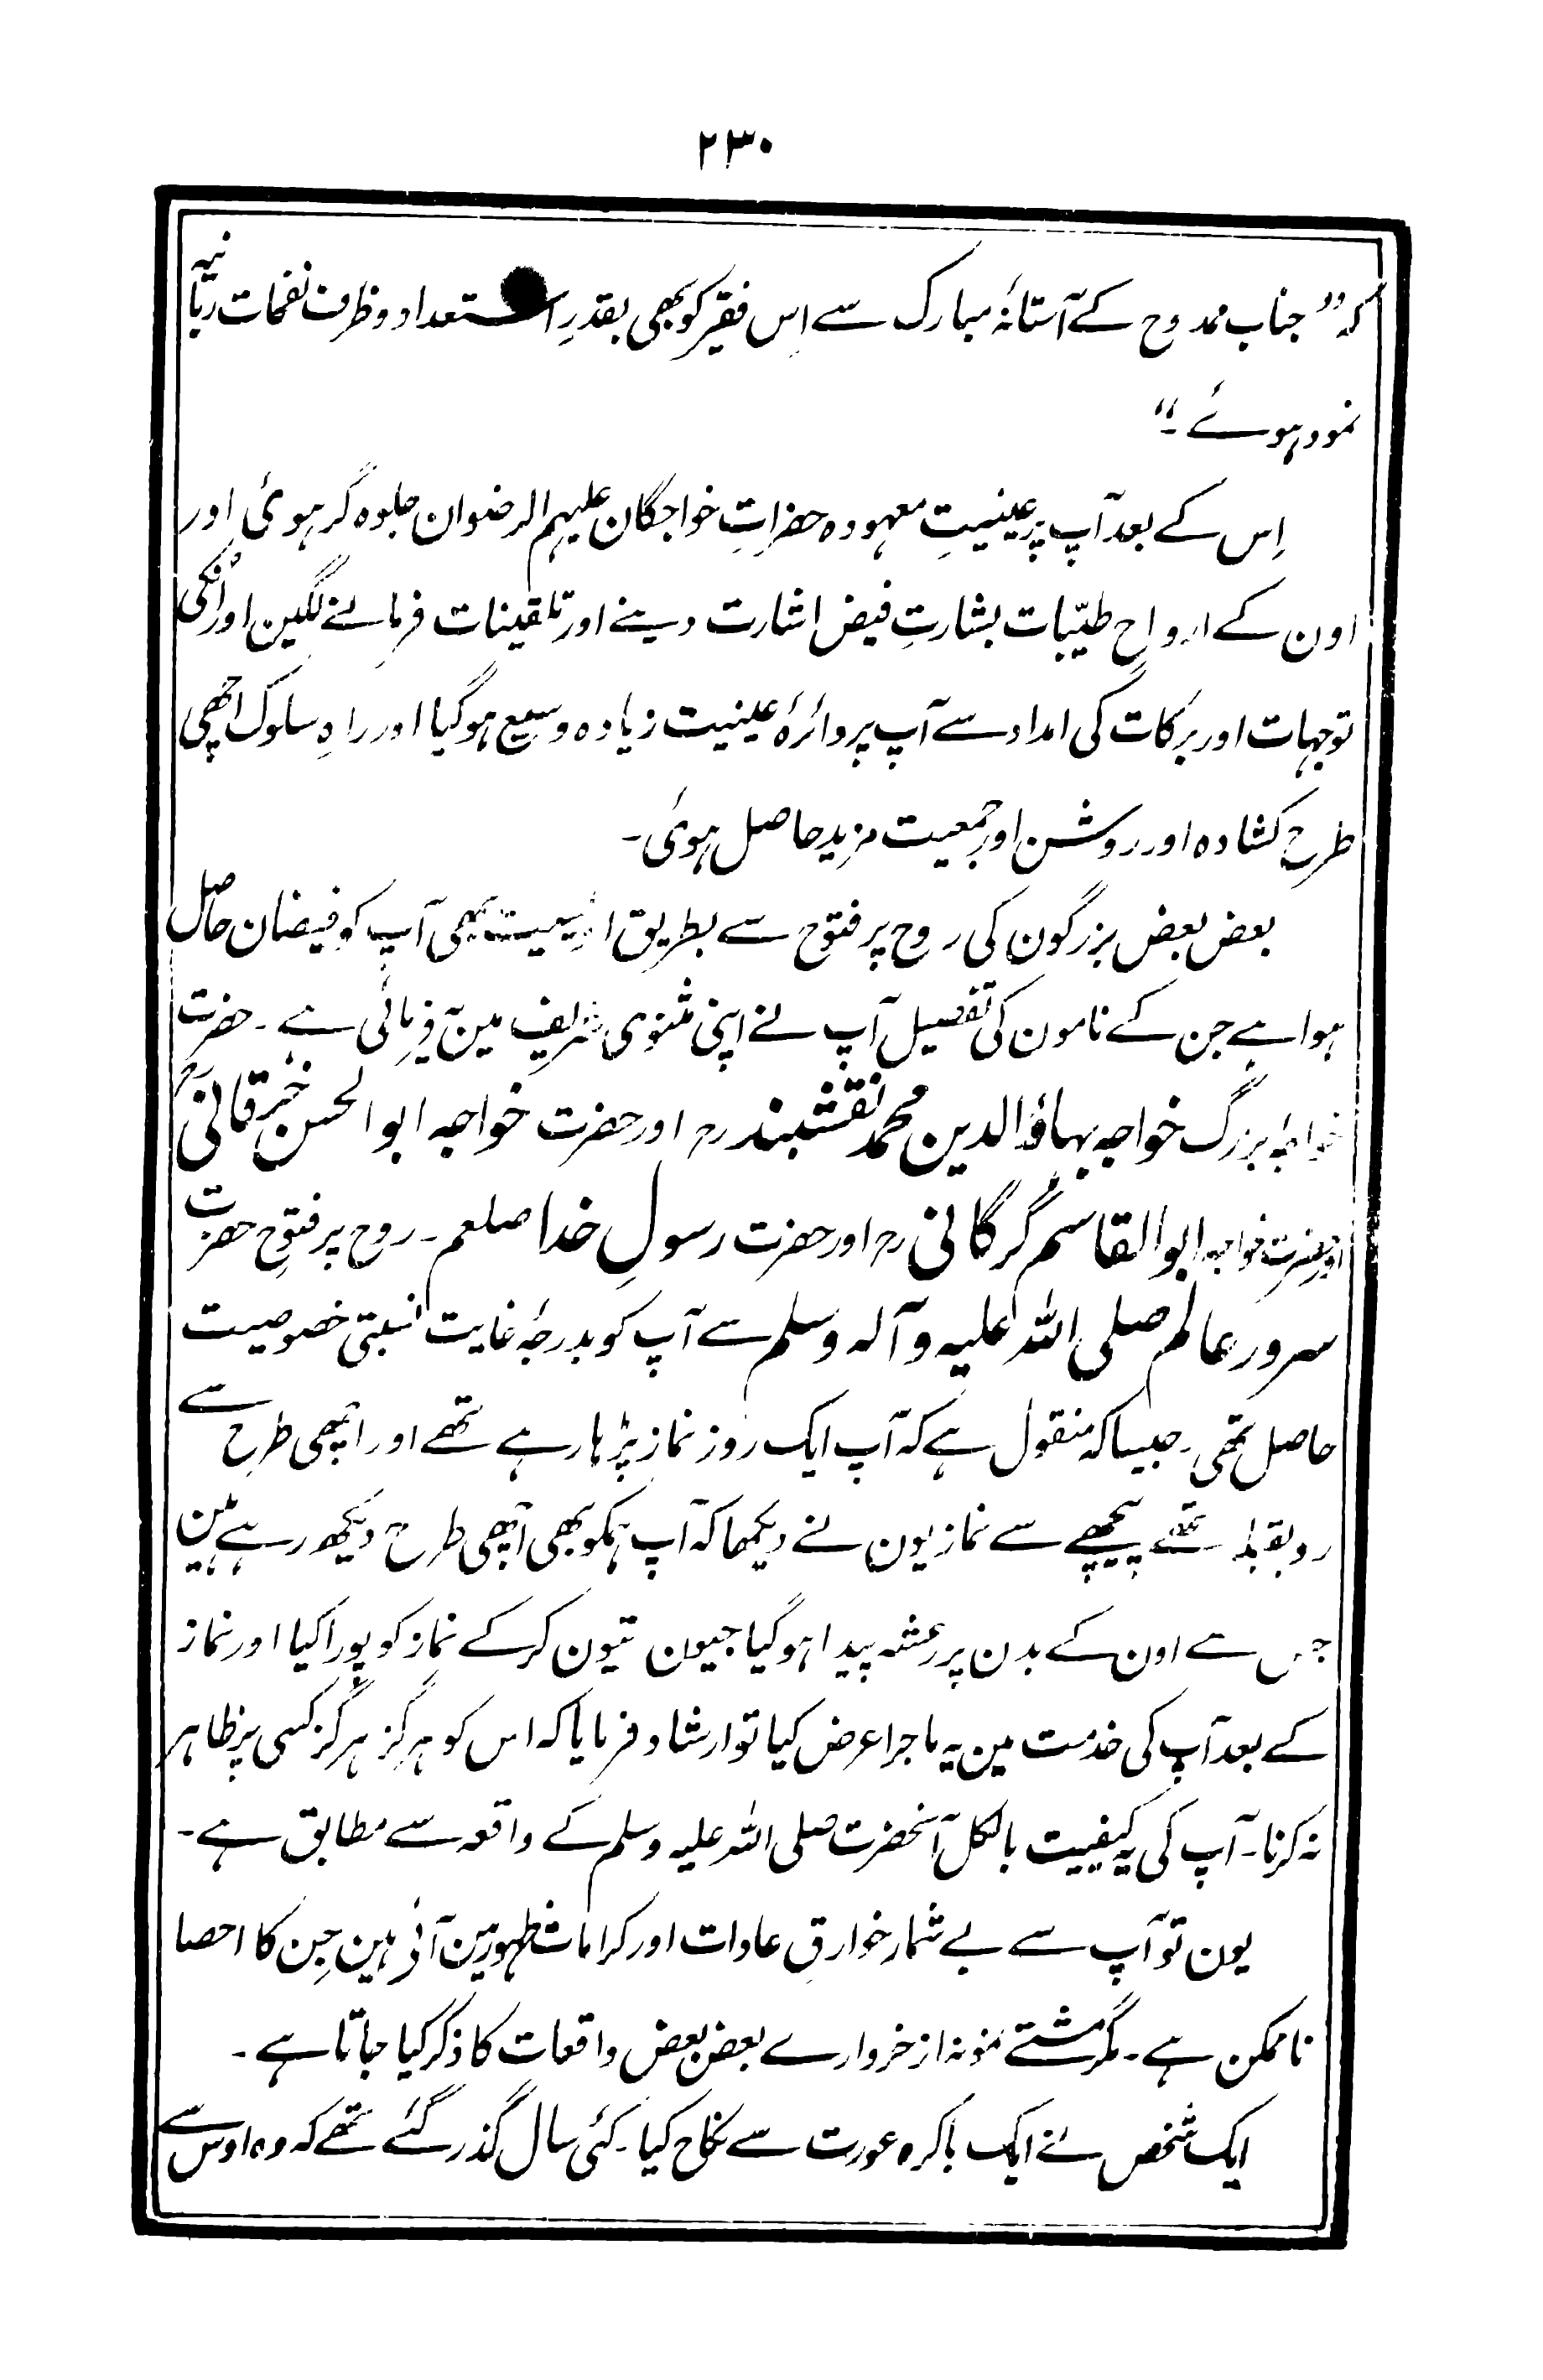 ۲۳۰
کہ ”جناب ممدوح کے آستانۂ مبارک سے اِس فقیر کو بھی بقدرِ استعداد و ظرف نفحات ربّانیہ
نمود ہوئے۔“
اِس کے بعد آپ پر عینیتِ معہودہ حضراتِ خواجگان علیہم الرضوان جلوہ گر ہوئی اور
اون کے ارواح طیّبات بشارتِ فیض اشارت دینے اور تلقینات فرمانے لگین اور اُنکی
توجہات اور برکات کی امداد سے آپ پر دائرۂ عینیت زیادہ وسیع ہوگیا اور راہِ سلوک اچھی
طرح کشادہ اور روشن اور جمعیت مزید حاصل ہوئی۔
بعض بعض بزرگون کی روح پر فتوح سے بطریق بھی آپ کو فیضان حاصل
ہوا ہے جن کے نامون کی تفصیل آپ نے اپنی مثنوی شریف مین فرمائی ہے۔ حضرت
خواجۂ بزرگ خواجہ بہاؤالدین محمد نقشبند رح اور حضرت خواجہ ابو الحسن خرقانی رح
اور حضرت خواجہ ابوالقاسم گرگانی رح اور حضرت رسولِ خدا صلعم۔ روح پر فتوحِ حضرت
سرور عالم صلی اللہ علیہ وآلہ وسلم سے آپ کو بدرجۂ غایت نسبتی خصوصیت
حاصل تھی۔ جیسا کہ منقول ہے کہ آپ ایک روز نماز پڑہا رہے تھے اور اچھی طرح سے
رو بقبلہ تھے پیچھے سے نمازیون نے دیکھا کہ آپ ہمکو بھی اچھی طرح دیکھ رہے ہین
جس سے اون کے بدن پر رعشہ پیدا ہوگیا جیون تیون کرکے نماز کو پورا کیا اور نماز
کے بعد آپ کی خدمت مین یہ ماجرا عرض کیا تو ارشاد فرمایا کہ اس کو ہرگز ہرگز کسی پر ظاہر
نہ کرنا۔ آپ کی یہ کیفیت بالکل آنحضرت صلی اللہ علیہ وسلم کے واقعہ سے مطابق ہے۔
یون تو آپ سے بے شمار خوارقِ عادات اور کرامات ظہور مین آئی ہین جن کا احصا
ناممکن ہے۔ مگر مشتے نمونہ از خروارے بعض بعض واقعات کا ذکر کیا جاتا ہے۔
ایک شخص نے ایک باکرہ عورت سے نکاح کیا۔ کئی سال گذر گئے تھے کہ وہ اوس سے